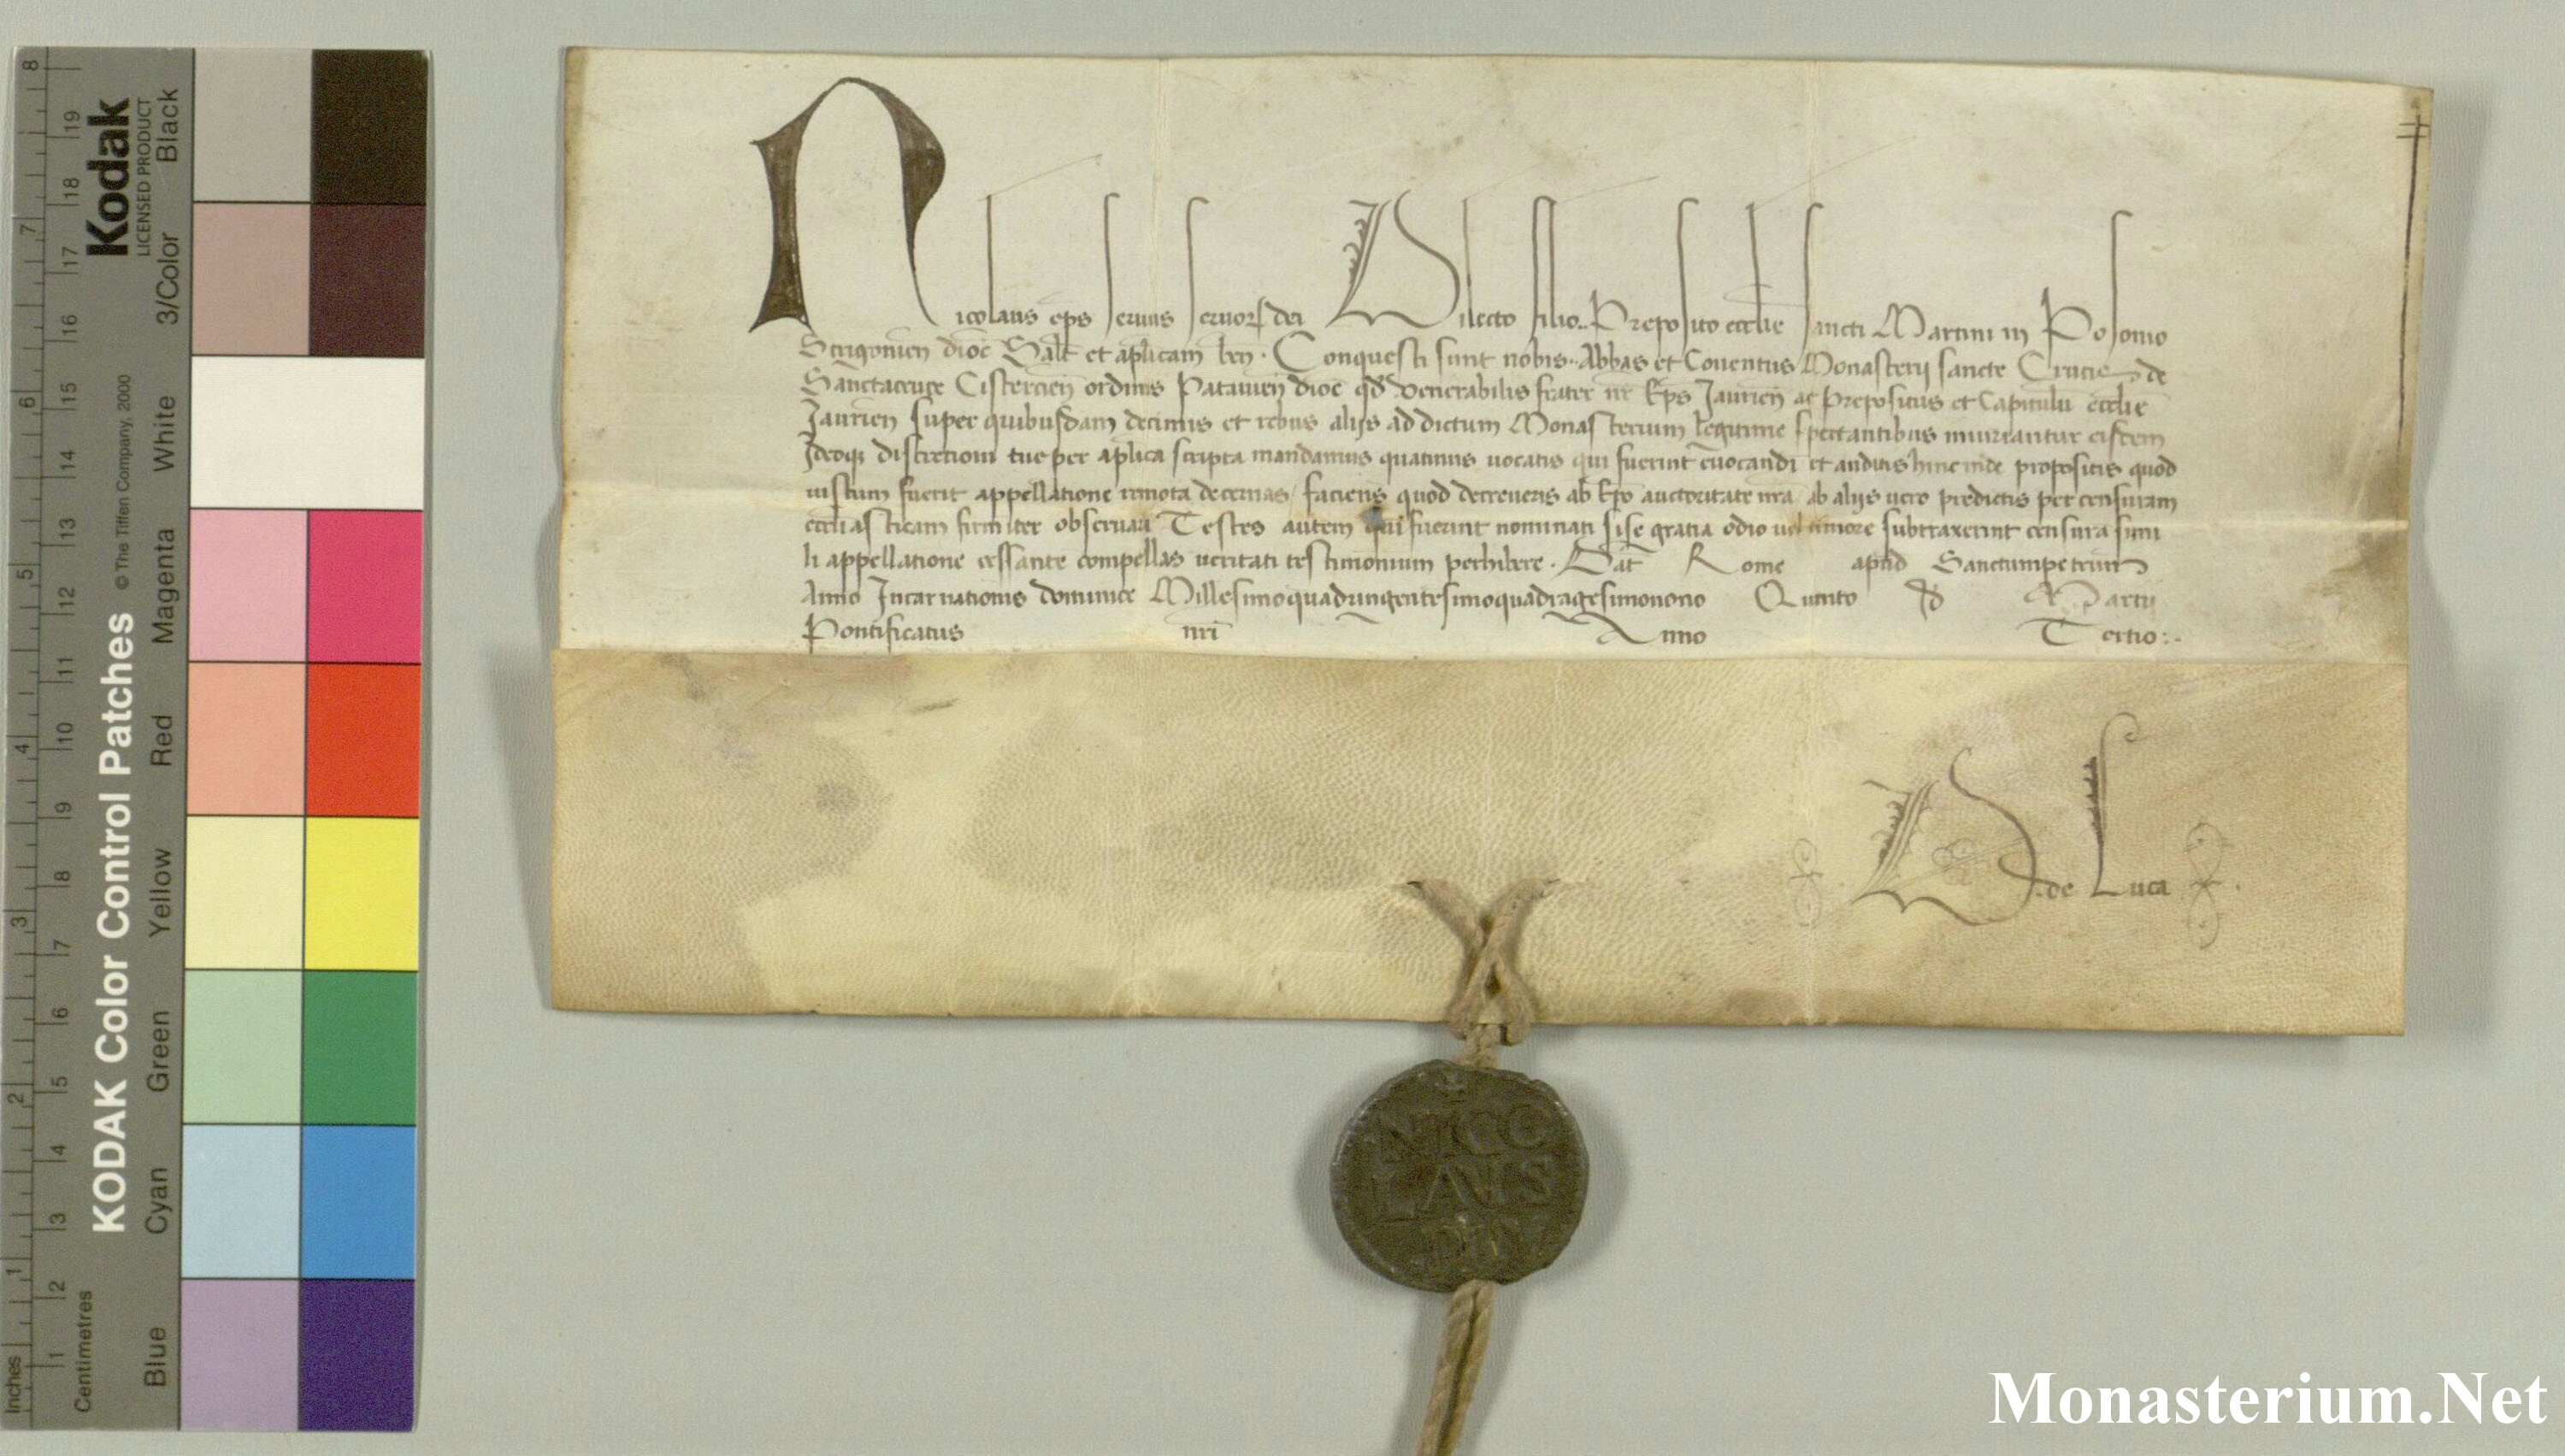 Nicolaus eps seruus seruoꝝ dei Dilecto filio.. Preposito ecclie sancti Martini in Posonio
Strigonien dioc Salt et aplicam ben. Conquesti sunt nobis.. Abbas et Conuentus Monasterij sancte Crucis de
Sanctacruce Cistercien ordinis Patauien dioc qd venerabilis frater nr Eps Jaurien ac Prepositus et Capitulu ecclie
Jaurien super quibusdam decimis et rebus alijs ad dictum Monasterium legitime spectantibus iniuriantur eisdem
Ideoqȝ discretioni tue per aplica scripta mandamus quatinus uocatis qui fuerint euocandi et auditis hincinde propositis quod
iustum fuerit appellatione remota decernas faciens quod decreueris ab Epo auctoritate nra ab alijs uero predictis per censuram
eccliasticam firmiter obseruari Testes autem qui fuerint nominati si se gratia odio uel timore subtraxerint censura simi
li appellatione cessante compellas ueritati testimonium perhibere. Dat Rome apud Sanctumpetrum
Anno Incarnationis dominice Millesimoquadringentesimoquadragesimonono Quinto Id Martii
Pontificatus nri Anno Tertio:.
D. de Luca
NICO
LAVS
PP V
Kodak
LICENSED PRODUCT
KODAK Color Control Patches © The Tiffen Company, 2000
Black
3/Color
White
Magenta
Red
Yellow
Green
Cyan
Blue
Inches 1 2 3 4 5 6 7 8
Centimetres 1 2 3 4 5 6 7 8 9 10 11 12 13 14 15 16 17 18 19
Monasterium.Net